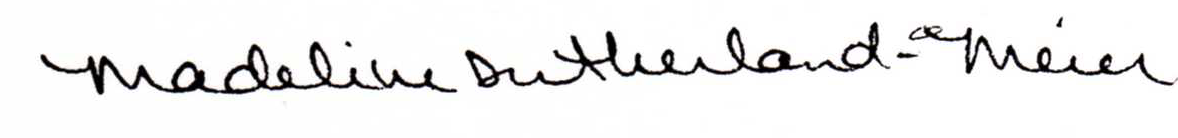 Madeline Sutherland-Meier